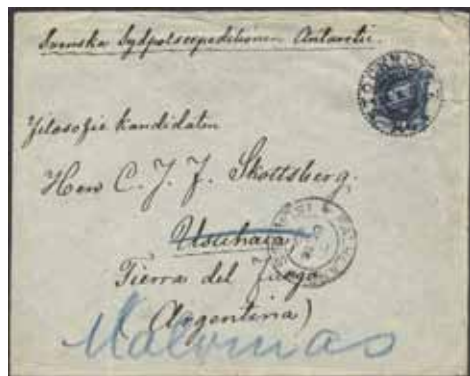 Svenska Sydpolsexpeditionen Antarctic.
Filosofie kandidaten
Herr C. J. F. Skottsberg.
Usuhaia
Tierra del fuego
(Argentina)
Malvinas